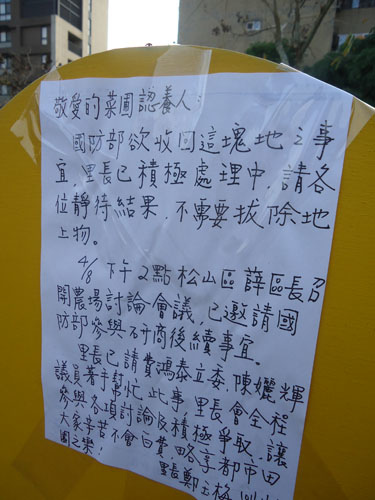 敬愛的菜圃認養人：
國防部欲收回這塊地之事
宜，里長已積極處理中，請各
位靜待結果，不需要拔除地
上物。
4/8 下午2點松山區薛區長召
開農場討論會議，已邀請國
防部參與研商後續事宜。
里長已請費鴻泰立委、陳孋輝
議員著手幫忙此事，里長會全程
參與各項討論及積極爭取，讓
大家辛苦不會白費，略享都市田
園之樂！
里長鄭